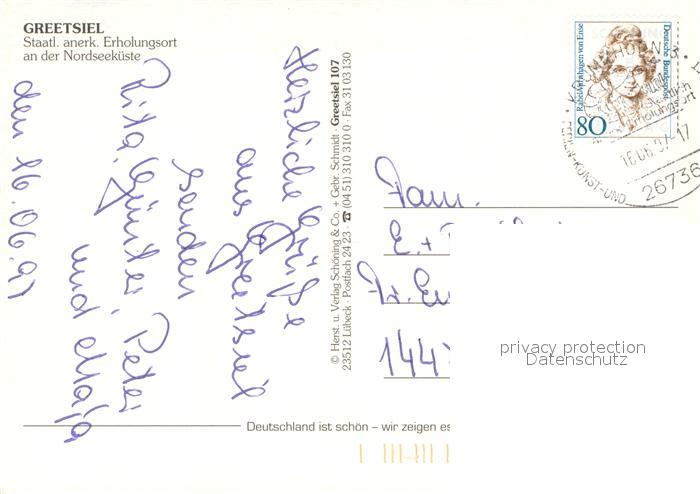 GREETSIEL
Staatl. anerk. Erholungsort
an der Nordseeküste
Herzliche Grüße
aus Greetsiel
senden
Rita, Günter, Peter
und Maja
den 16.06.97
© Herst. u. Verlag Schöning & Co. + Gebr. Schmidt · Greetsiel 107
23512 Lübeck · Postfach 24 23 · ☎ (04 51) 310 310 0 · Fax 31 03 130
Rahel Varnhagen von Ense
Deutsche Bundespost
80
KRUMMHÖRN 3
16.06.97-17
FERIEN-KUNST-UND
26736
Fam.
E. +
144
privacy protection
Datenschutz
Deutschland ist schön – wir zeigen es